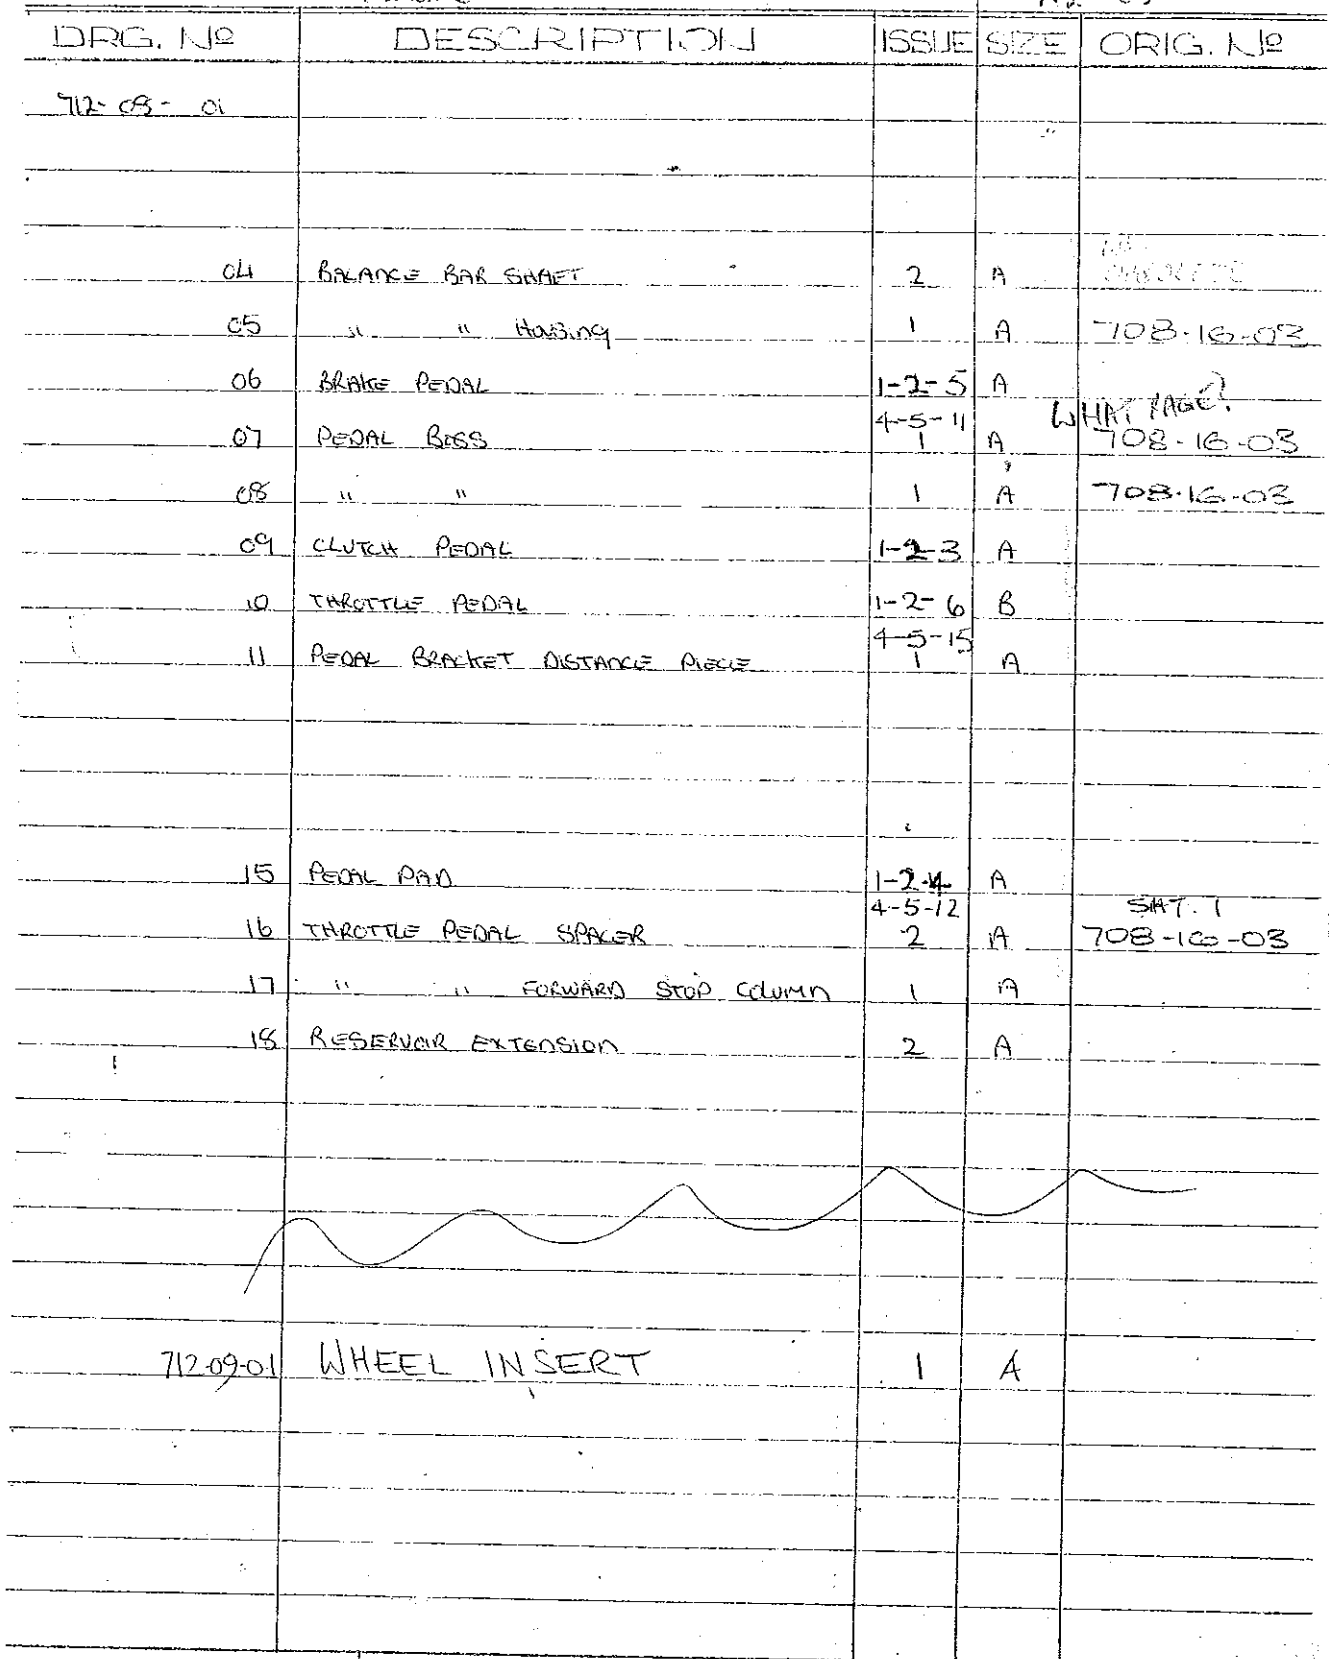 DRG. No DESCRIPTION ISSUE SIZE ORIG. No
712-08-01
04 BALANCE BAR SHAFT 2 A
05 " " Housing 1 A 708-16-03
06 BRAKE PEDAL 1-2-5 A
4-5-11 WHAT PAGE?
07 PEDAL BOSS 1 A 708-16-03
08 " " 1 A 708-16-03
09 CLUTCH PEDAL 1-2-3 A
10 THROTTLE PEDAL 1-2-6 B
4-5-15
11 PEDAL BRACKET DISTANCE PIECE 1 A
15 PEDAL PAD 1-2-4 A
4-5-12 SHT. 1
16 THROTTLE PEDAL SPACER 2 A 708-16-03
17 " " FORWARD STOP COLUMN 1 A
18 RESERVOIR EXTENSION 2 A
712-09-01 WHEEL INSERT 1 A